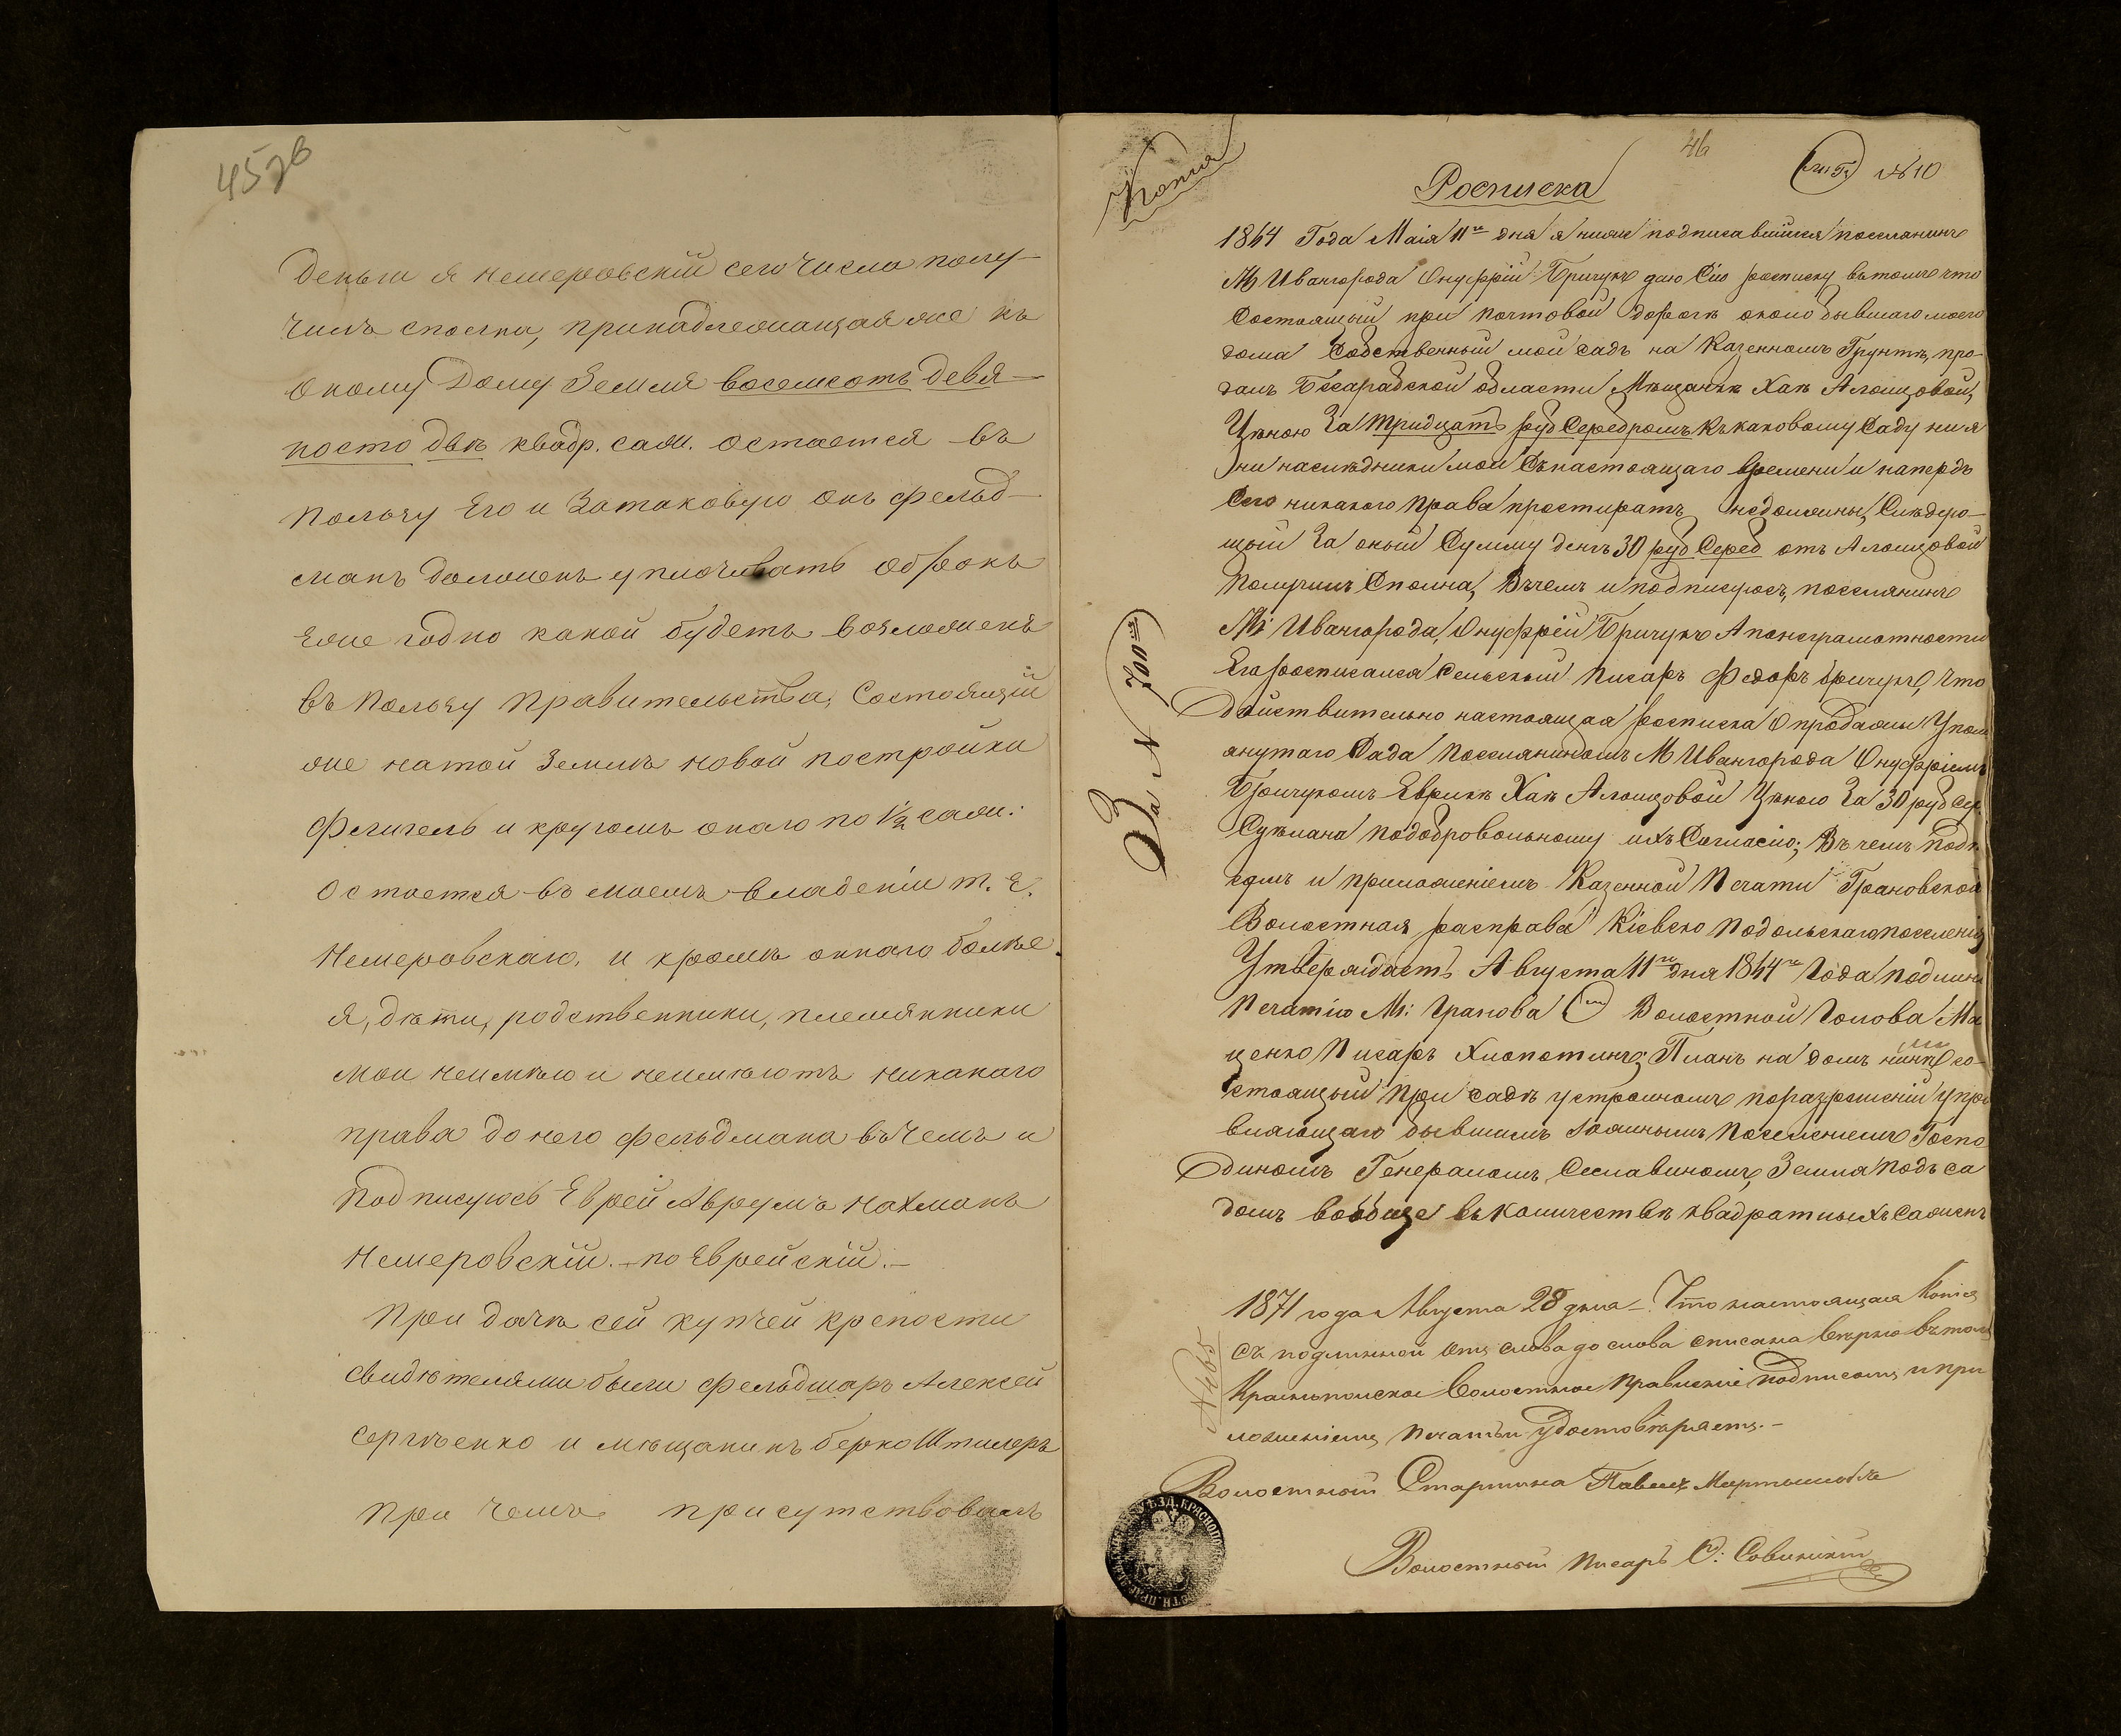 45зв
деньги я Немеровскій сего числа полу-
чилъ сполна, принадлежащая же къ
оному Дому Земля восемсотъ девя-
носто двѣ квадр. саж. остается въ
пользу Его и Затаковую онъ Фельд-
манъ долженъ уплочивать оброкъ
Еже годно какой будетъ возложенъ
въ пользу Правительства, Состоящій
же натой Землѣ новой постройки
Флигель и кругомъ онаго по 1½ саж:
Остается въ моемъ владеніи т. Е.
Немеровскаго, и кромѣ оннаго болѣе
я, дѣти, родственники, племянники
мои неимѣю и неимѣютъ никакаго
права до него Фельдмана въ чемъ и
Подписуюсь Еврей Аврумъ Нахманъ
Немеровскій. – по Еврейскій. –
При дачѣ сей купчей крепости
свидѣтелями были Фельдшаръ Алексей
Сергѣенко и мѣщанинъ Берко Штилеръ
При чемъ присутствовалъ
Копія
46
№ 10
Росписка
1864 Года Маія 11го дня я ниже подписавшійся поселянинъ
М Ивангорода Онуфрій Бричукъ даю Сію росписку вътомъ что
Состоящый при почтовой дорогѣ около бывшаго моего
дома Собственный мой садъ на Казенномъ Грунтѣ, про-
далъ Бесарабской области Мѣщанкѣ Хаѣ Альошовой,
Цѣною За Тридцать руб Серебромъ Къкаковому Саду ни я
ни наслѣдники мои Съ настоящаго времени и наперѣдъ
Сего никакого Права простирать недолжны, Слѣдую-
щый За оный Сумму денгъ 30 руб Сереб отъ Альошовой
Получилъ Сполна, Вчемъ и подписуюсь, поселянинъ
М: Ивангорода, Онуфрій Бричукъ А понеграмотности
Его росписался Сельскый Писаръ Федоръ Бричукъ, что
Дѣйствительно настоящая росписка о продажи Упом
янутаго Сада Поселяниномъ М Ивангорода Онуфріемъ
Бричукомъ Еврикѣ Хаѣ Альошовой Цѣною За 30 руб Сер.
Сдѣлана подобровольному ихъ Согласію; Въ чемъ Подп
сомъ и приложеніемъ Казенной Печати Грановская
Волостная расправа Кіевско Подольскаго поселенія
Утверждаетъ Августа 11го дня 1864го Года подлин
Печатію М: Гранова Волостной Голова Ма
ценко Писаръ Хлопотинъ; Планъ на домъ нинѣ со-
стоящый при садѣ устроиномъ поразрешеній упра
вляющаго бывшимъ Южнымъ Поселеніемъ Госпо
Диномъ Генераломъ Сеславиномъ, Земля Подъ са
домъ вообще въ Количествѣ квадратныхъ Саженъ
За N 700
1871 года Августа 28 дня – Что настоящая Копія
съ подлинной отъ слова до слова списана верно въ том
Краснопольское Волостное Правленіе подписомъ и при
ложеніемъ Печати Удостовѣряетъ. –
N 1465
Волостный Старшина Павелъ
Волостный Писаръ С: Совинскій